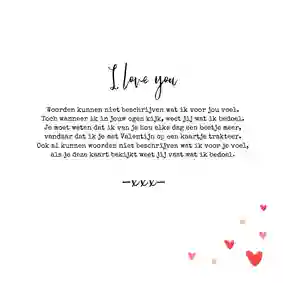 I love you
Woorden kunnen niet beschrijven wat ik voor jou voel.
Toch wanneer ik in jouw ogen kijk, weet jij wat ik bedoel.
Je moet weten dat ik van je hou elke dag een beetje meer,
vandaar dat ik je met Valentijn op een kaartje trakteer.
Ook al kunnen woorden niet beschrijven wat ik voor je voel,
als je deze kaart bekijkt weet jij vast wat ik bedoel.
—xxx—